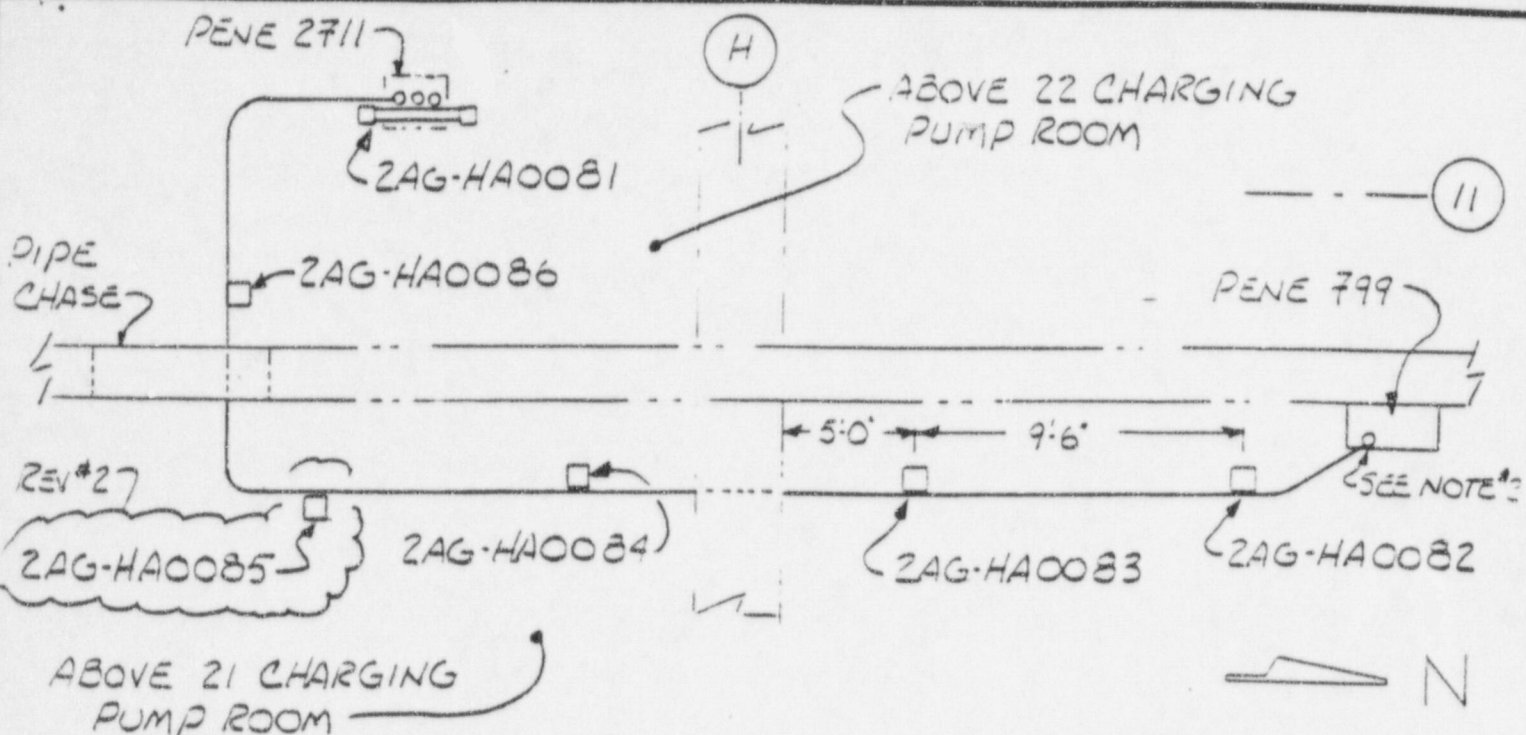 PENE 2711
H
ABOVE 22 CHARGING
PUMP ROOM
2AG-HA0081
11
PIPE
CHASE
2AG-HA0086
PENE 799
5'-0"
9'-6"
REV #2
SEE NOTE #
2AG-HA0085
2AG-HA0084
2AG-HA0083
2AG-HA0082
ABOVE 21 CHARGING
PUMP ROOM
N